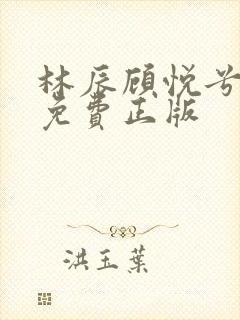 林辰顾悦兮
免費正版
洪玉葉